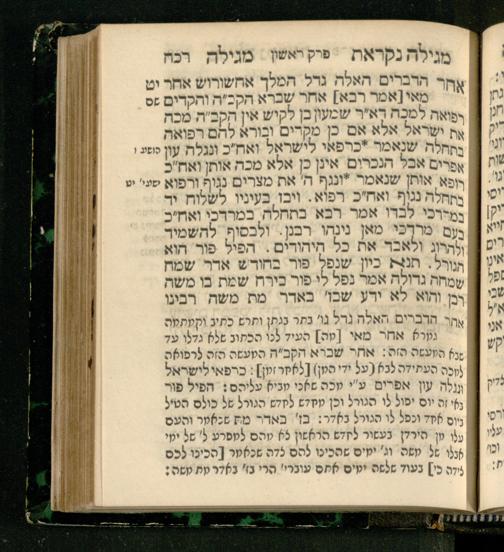 מגילה נקראת פרק ראשון מגילה רכח
אחר הדברים האלה גדל המלך אחשורוש אחר יט
מאי [אמר רבא] אחר שברא הקב״ה והקדים סס
רפואה למכה דא״ר שמעון בן לקיש אין הקב״ה מכה
את ישראל אלא אם כן מקדים ובורא להם רפואה
בתחלה שנאמר *כרפאי לישראל ואח״כ ונגלה עון הושע ז
אפרים אבל הנכרים אינן כן אלא מכה אותן ואח״כ
רופא אותן שנאמר *ונגף ה׳ את מצרים נגוף ורפוא ישעי׳ יט
בתחלה נגוף ואח״כ רפוא. ויבז בעיניו לשלוח יד
במרדכי לבדו אמר רבא בתחלה במרדכי ואח״כ
בעם מרדכי מאן נינהו רבנן. ולבסוף להשמיד
ולהרוג ולאבד את כל היהודים. הפיל פור הוא
הגורל. תנא כיון שנפל פור בחודש אדר שמח
שמחה גדולה אמר נפל לי פור בירח שמת בו משה
רבן והוא לא ידע שבז׳ באדר מת משה רבינו
אחר הדברים האלה גדל גו׳ בתר בגתן ותרש כתיב וקמתמה
גמרא אחר מאי [מה] העיד לנו הכתוב שלא גדלו עד
שבא המעשה הזה: אחר שברא הקב״ה המעשה הזה לרפואה
למכה העתידה לבא (על ידי המן) [לאקר זמן]: כרפאי לישראל
ונגלה עון אפרים ע״י מכה שאני מביא עליהם: הפיל פור
באי זה יום יפול לו הגורל וכן מקדש לקדש הגורל של כולם הטיל
ביום אחד ונפל לו הגורל באדר: בז׳ באדר מת שנאמר והעם
עלו מן הירדן בעשור לחדש הראשון לא מהם למפרע ל׳ של ימי
אבלו של משה וג׳ ימים שהכינו להם לדה שנאמר [הכינו לכם
לידה כי] בעוד שלשה ימים אתם עוברי׳ הרי בז׳ באדר מת משה: